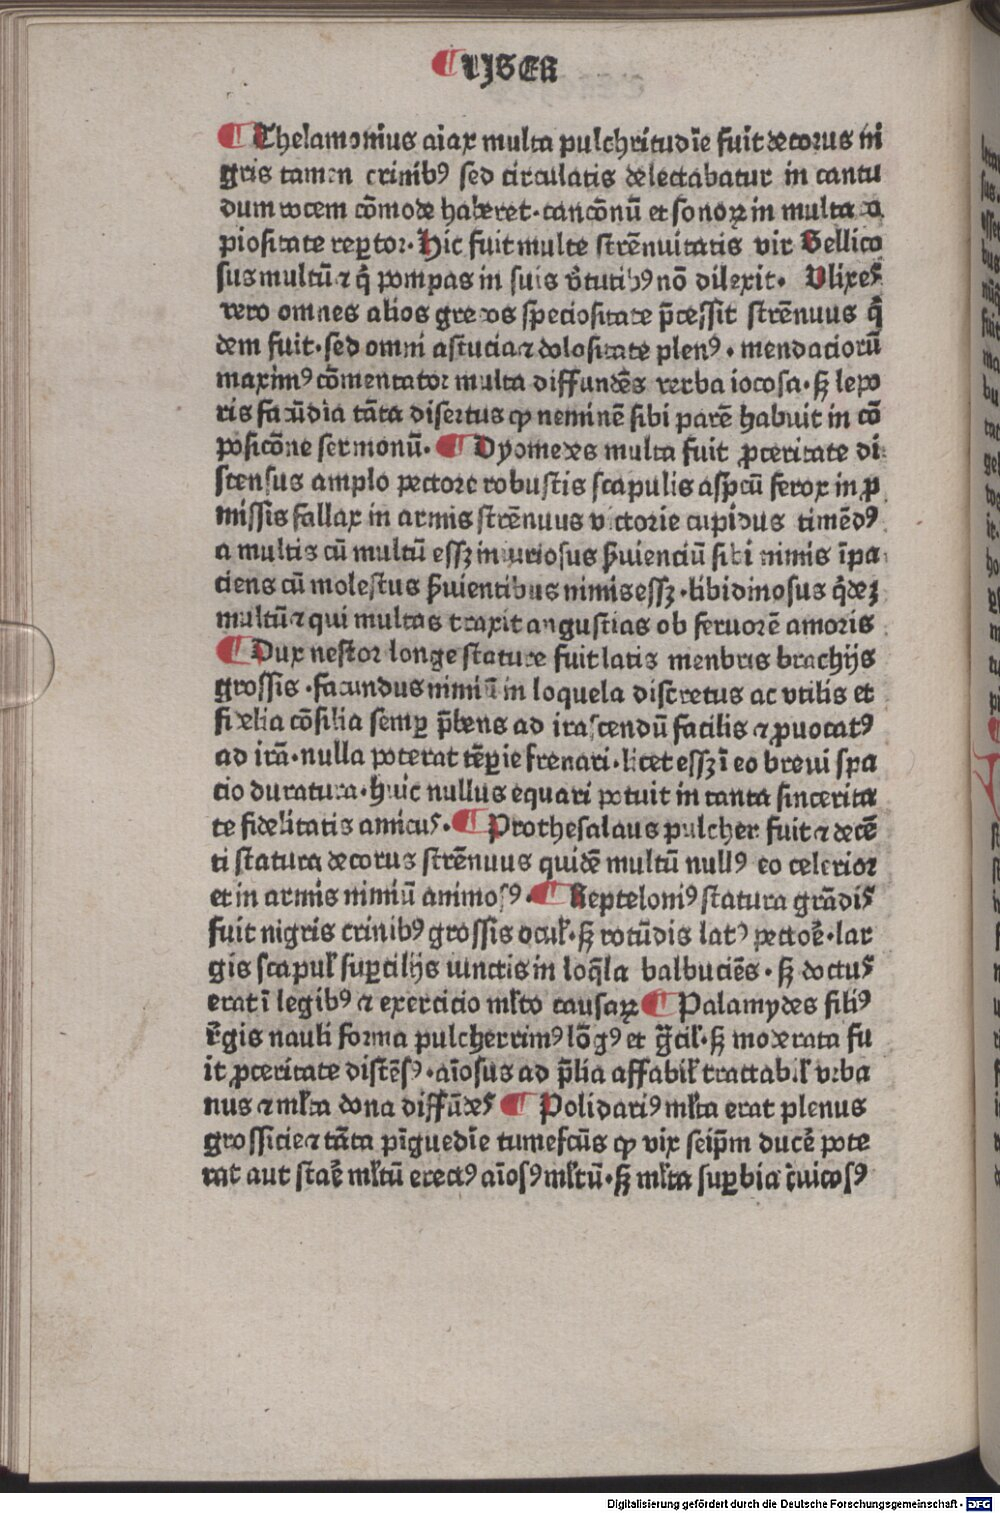 ¶ LIBER
¶ Thelamonius aiax multa pulchritudīe fuit decorus ni
gris tamen crinibꝰ sed circulatis delectabatur in cantu
dum vocem cōmode haberet · cancōnū et sonoꝝ in multa co
piositate reꝑtor · Hic fuit multe strēnuitatis vir Bellico
sus multū ⁊ q̄ pompas in suis v̄tutibꝰ nō dilexit · Ulixes
vero omnes alios grecos speciositate p̄cessit strēnuus q̄
dem fuit · sed omni astucia ⁊ dolositate plenꝰ · mendaciorū
maximꝰ cōmentator multa diffundēs verba iocosa · sꝫ lepo
ris facūdia tāta disertus ꝙ neminē sibi parē habuit in cō
posicōne sermonū · ¶ Dyomedes multa fuit ꝓceritate di
stensus amplo pectore robustis scapulis aspcū ferox in ꝓ
missis fallax in armis strēnuus victorie cupidus timēdꝰ
a multis cū multū essꝫ iniuriosus s̄uienciū sibi nimis īpa
ciens cū molestus s̄uientibus nimis essꝫ · libidinosus q̄deꝫ
multū ⁊ qui multas traxit angustias ob feruorē amoris
¶ Dux nestor longe stature fuit latis menbris brachijs
grossis · facundus nimiū in loquela discretus ac vtilis et
fidelia cōsilia semꝑ p̄bens ad irascendū facilis ⁊ ꝓuocatꝰ
ad irā · nulla poterat tēꝑie frenari · licet essꝫ ī eo breui spa
cio duratura · huic nullus equari potuit in tanta sincerita
te fidelitatis amicus · ¶ Prothesalaus pulcher fuit ⁊ decē
ti statura decorus strēnuus quidē multū nullꝰ eo celerior
et in armis nimiū animosꝰ · ¶ Neptoloniꝰ statura grādis
fuit nigris crinibꝰ grossis ocul̄ · sꝫ rotūdis latꝰ pectoē · lar
gis scapul̄ suꝑcilijs iunctis in loq̄la balbuciēs · sꝫ doctus
erat ī legibꝰ ⁊ exercicio ml̄to causaꝝ ¶ Palamydes filiꝰ
r̄gis nauli forma pulcherrimꝰ lōgꝰ et gͣcil̄ · sꝫ moderata fu
it ꝓceritate distēsꝰ · aīosus ad p̄lia affabil̄ tractabil̄ vrba
nus ⁊ ml̄ta dona diffūdēs ¶ Polidariꝰ ml̄ta erat plenus
grossicie ⁊ tāta pīguedīe tumefcūs ꝙ vix seip̄m ducē pote
rat aut staē ml̄tū erectꝰ aīosꝰ ml̄tū · sꝫ ml̄ta suꝑbia
Digitalisierung gefördert durch die Deutsche Forschungsgemeinschaft - DFG